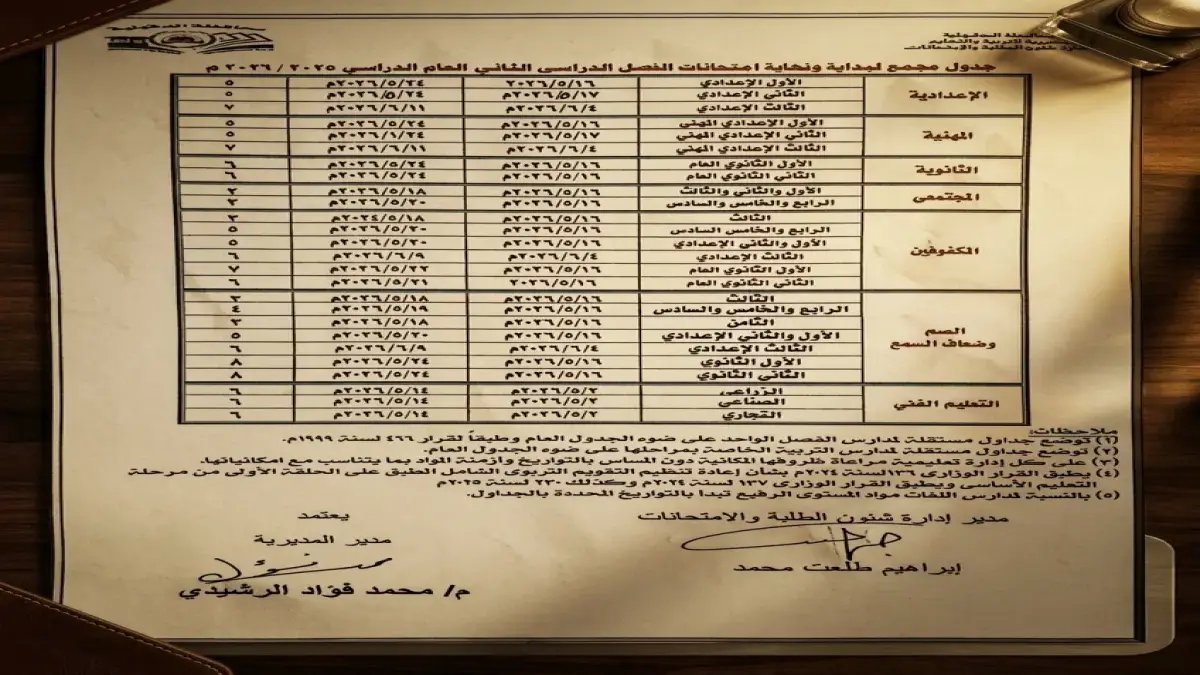 محافظة الدقهلية
مديرية التربية والتعليم
إدارة شئون الطلبة والإمتحانات
جدول مجمع لبداية ونهاية امتحانات الفصل الدراسى الثاني العام الدراسي ٢٠٢٥ / ٢٠٢٦ م
الإعدادية
الأول الإعدادي ٢٠٢٦/٥/١٦ ٢٠٢٦/٥/٢٤م ٥
الثاني الإعدادي ٢٠٢٦/٥/١٧م ٢٠٢٦/٥/٢٤م ٥
الثالث الإعدادي ٢٠٢٦/٦/٤م ٢٠٢٦/٦/١١م ٧
المهنية
الأول الإعدادي المهني ٢٠٢٦/٥/١٦م ٢٠٢٦/٥/٢٤م ٥
الثاني الإعدادي المهني ٢٠٢٦/٥/١٧م ٢٠٢٦/١/٢٤م ٥
الثالث الإعدادي المهني ٢٠٢٦/٦/٤م ٢٠٢٦/٦/١١م ٧
الثانوية
الأول الثانوي العام ٢٠٢٦/٥/١٦م ٢٠٢٦/٥/٢٤م ٦
الثاني الثانوي العام ٢٠٢٦/٥/١٦م ٢٠٢٦/٥/٢٤م ٦
المجتمعي
الأول والثاني والثالث ٢٠٢٦/٥/١٦م ٢٠٢٦/٥/١٨م ٢
الرابع والخامس والسادس ٢٠٢٦/٥/١٦م ٢٠٢٦/٥/٢٠م ٣
المكفوفين
الثالث ٢٠٢٦/٥/١٦م ٢٠٢٤/٥/١٨م ٣
الرابع والخامس السادس ٢٠٢٦/٥/١٦م ٢٠٢٦/٥/٢٠م ٥
الأول والثاني الإعدادي ٢٠٢٦/٥/١٦م ٢٠٢٦/٥/٢٠م ٥
الثالث الإعدادي ٢٠٢٦/٦/٤م ٢٠٢٦/٦/٩م ٦
الأول الثانوي العام ٢٠٢٦/٥/١٦م ٢٠٢٦/٥/٢٢م ٧
الثاني الثانوي العام ٢٠٢٦/٥/١٦ ٢٠٢٦/٥/٢١م ٦
الصم
وضعاف السمع
الثالث ٢٠٢٦/٥/١٦م ٢٠٢٦/٥/١٨م ٢
الرابع والخامس والسادس ٢٠٢٦/٥/١٦م ٢٠٢٦/٥/١٩م ٤
الثامن ٢٠٢٦/٥/١٦م ٢٠٢٦/٥/١٨م ٣
الأول والثاني الإعدادي ٢٠٢٦/٥/١٦م ٢٠٢٦/٥/٢٠م ٥
الثالث الإعدادي ٢٠٢٦/٦/٤م ٢٠٢٦/٦/٩م ٦
الأول الثانوي ٢٠٢٦/٥/١٦م ٢٠٢٦/٥/٢٤م ٨
الثاني الثانوي ٢٠٢٦/٥/١٦م ٢٠٢٦/٥/٢٤م ٨
التعليم الفني
الزراعى ٢٠٢٦/٥/٢م ٢٠٢٦/٥/١٤م ٦
الصناعى ٢٠٢٦/٥/٢م ٢٠٢٦/٥/١٤م ٦
التجاري ٢٠٢٦/٥/٢م ٢٠٢٦/٥/١٤م ٦
ملاحظات:
(١) توضع جداول مستقلة لمدارس الفصل الواحد على ضوء الجدول العام وطبقاً لقرار ٤٦٦ لسنة ١٩٩٩م.
(٢) توضع جداول مستقلة لمدارس التربية الخاصة بمراحلها على ضوء الجدول العام.
(٣) على كل إدارة تعليمية مراعاة ظروفها المكانية دون المساس بالتواريخ وأزمنة المواد بما يتناسب مع امكانياتها.
(٤) يطبق القرار الوزارى ١٣٦ لسنة ٢٠٢٤م بشأن إعادة تنظيم التقويم التربوى الشامل الطبق على الحلقة الأولى من مرحلة
التعليم الأساسى ويطبق القرار الوزارى ١٣٧ لسنة ٢٠٢٤م وكذلك ٢٣٠ لسنة ٢٠٢٥م
(٥) بالنسبة لمدارس اللغات مواد المستوى الرفيع تبدا بالتواريخ المحددة بالجداول.
مدير إدارة شئون الطلبة والامتحانات
إبراهيم طلعت محمد
يعتمد
مدير المديرية
م/ محمد فؤاد الرشيدي